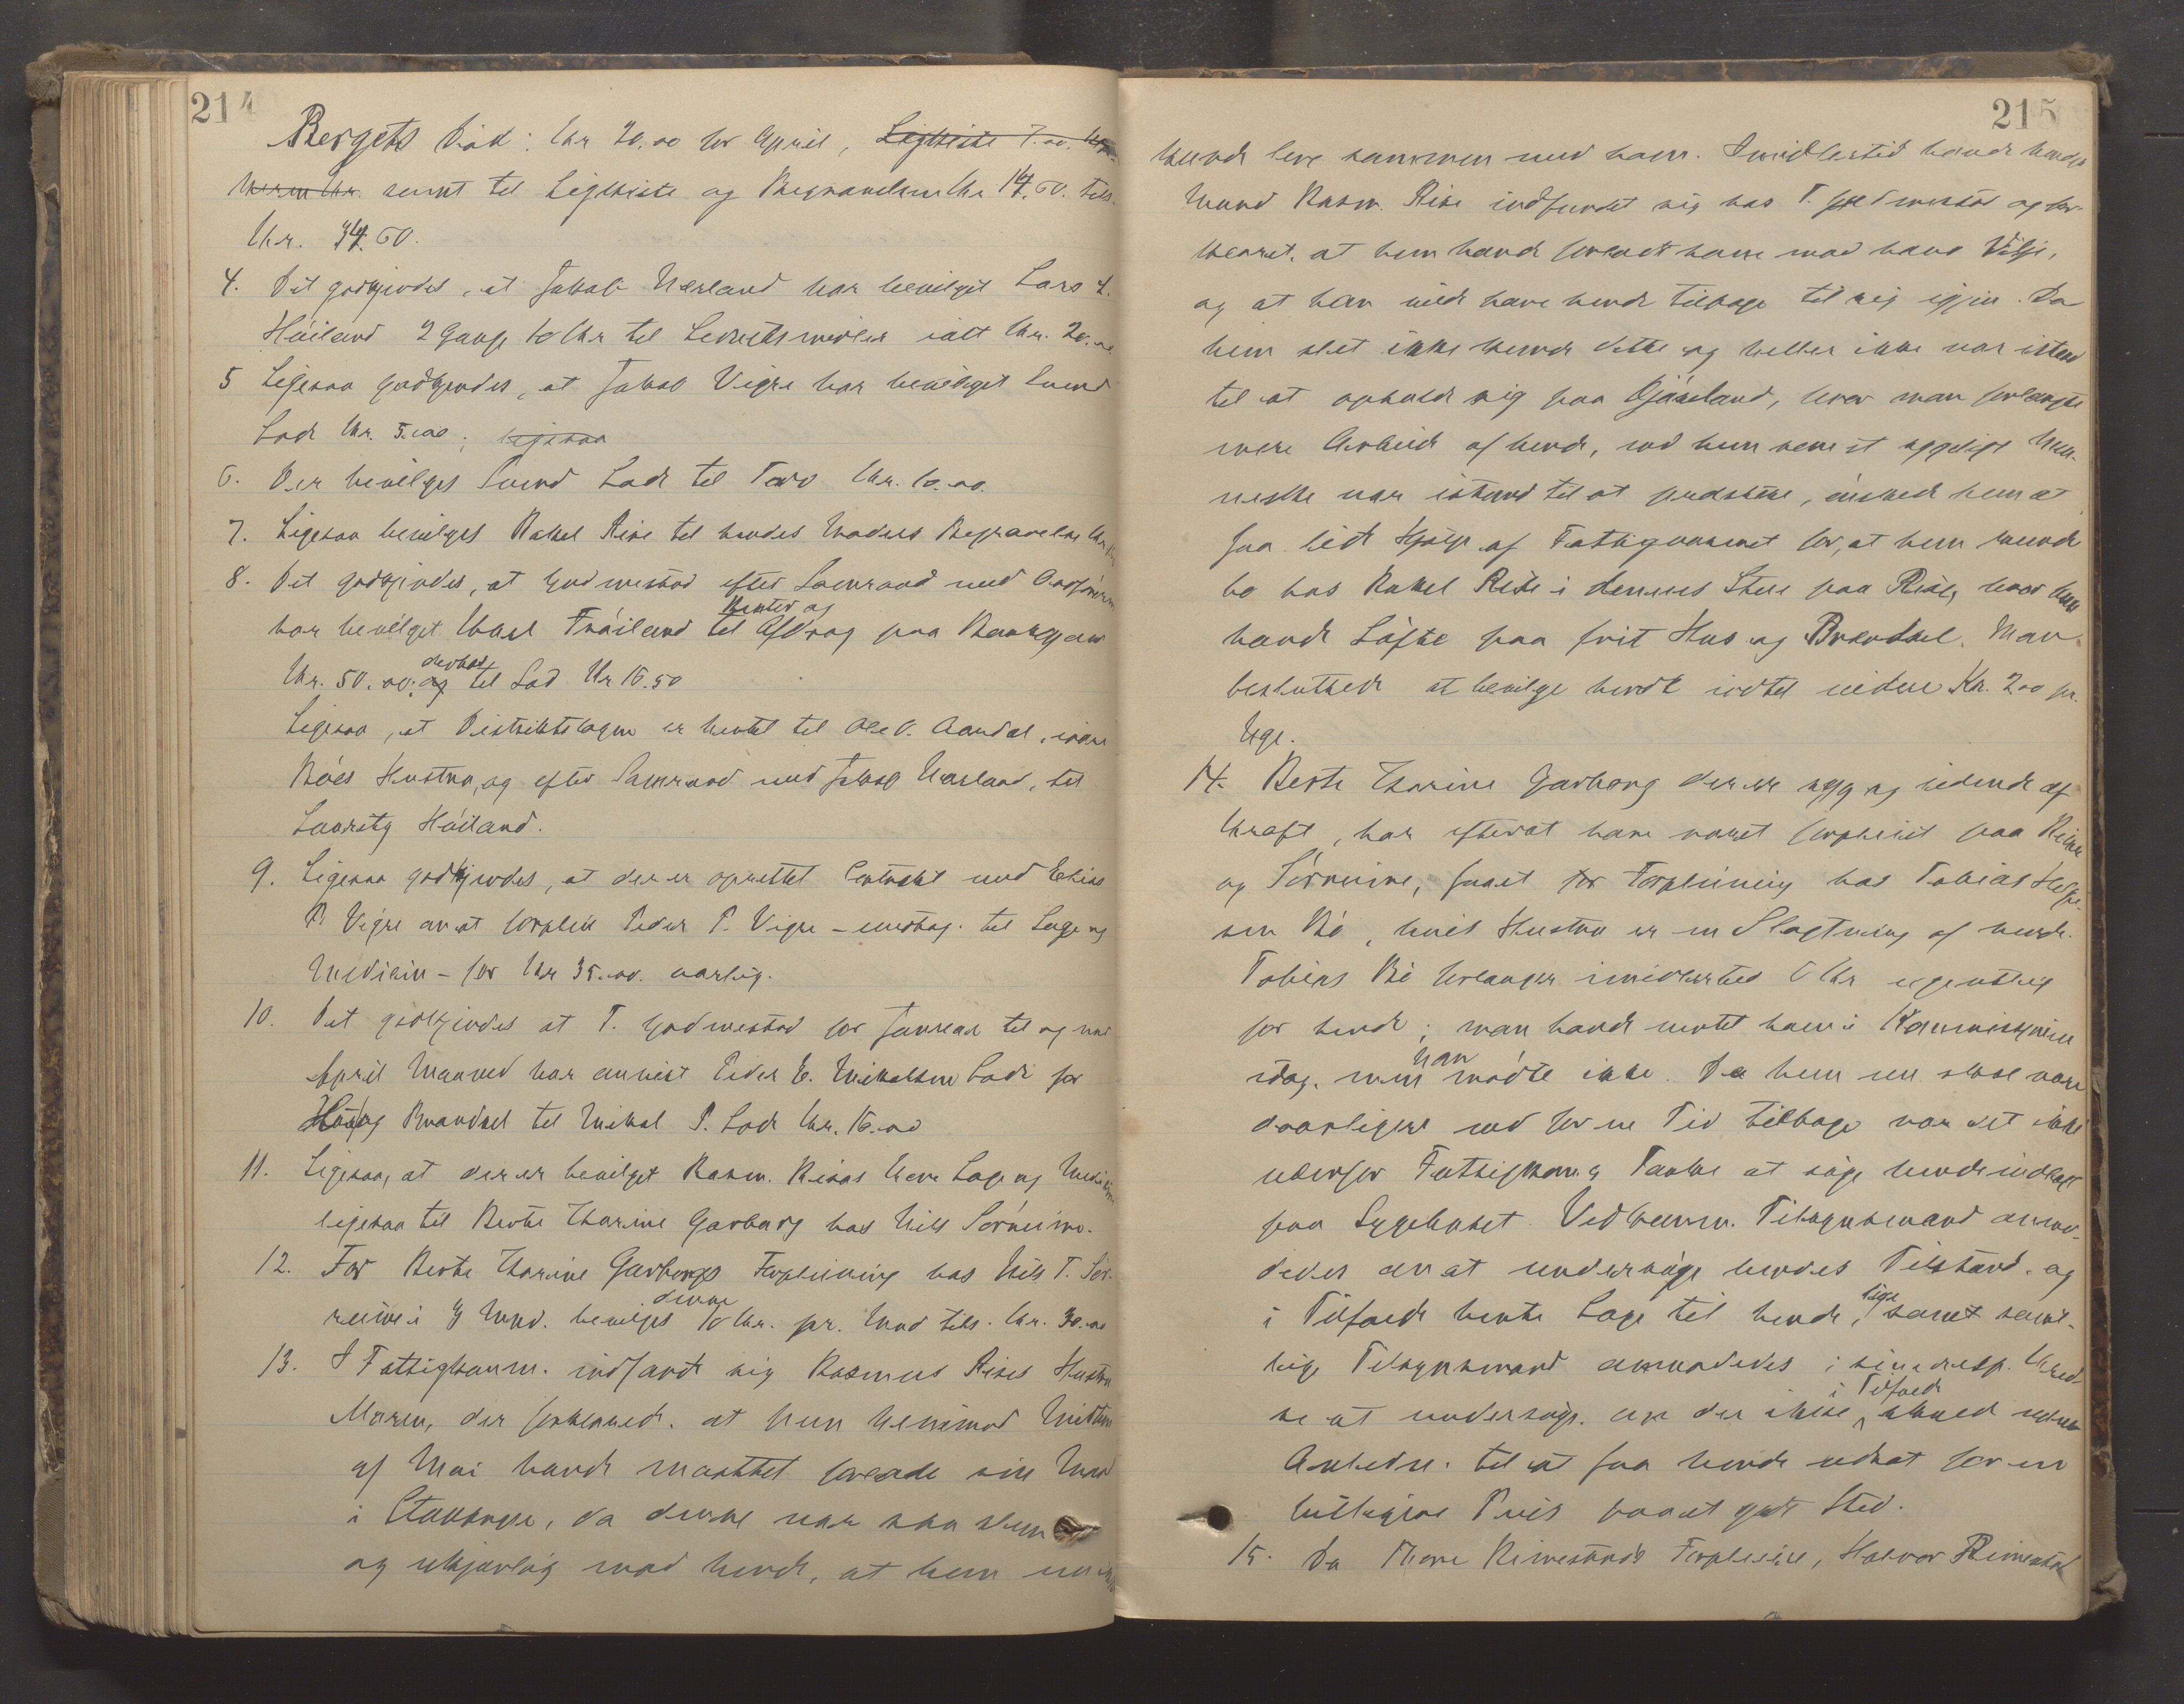 214
Bergets Død: Kr 20.00 for April, Ligkiste 7.00.
samt til Ligkiste og Begravelsen Kr 14.60. tils.
Kr. 34.60.
4. Det godkjendes, at Jakob Nærland har bevilget Lars L.
Høiland 2 Gange 10 Kr til Levnetsmidler ialt Kr. 20.00
5 Ligesaa godkjendes, at Jakob Vigre har bevilget Svend
Lode Kr. 5.00; ligesaa
6. Der bevilges Svend Lode til Torv Kr. 10.00.
7. Ligesaa bevilges Rakel Rise til hendes Moders Begravelse Kr
8. Det godkjendes, at Godmestad efter Samraad med Ordføreren
har bevilget Karl Frøiland til Renter og Afdrag paa Bankgjæld
Kr. 50.00; og desuden til Sæd Kr 16.50
Ligesaa, at Distriktslægen er hentet til Ole O. Aandal, ivare
Bøes Hustru, og efter Samraad med Jakob Nærland, til
Lauritz Høiland.
9. Ligesaa godkjendes, at der er oprettet Contrakt med Elias
P. Vigre om at forpleie Peder P. Vigre – undtag. til Læge og
Medicin – for Kr 35.00. aarlig.
10. Det godkjendes at T. Godmestad for Januar til og med
April Maaned har anvist Peder E. Mikalsen Lode for
Hus og Brændsel til Mikal P. Lode Kr. 16.00
11. Ligesaa, at der er bevilget Rasm. Risas Kone Læge og Medicin
ligesaa til Berte Tharine Garborg hos Nils Sørreime.
12. For Berte Tharine Garborgs Forpleining hos Nils T. Sør-
reime i 3 Mnd. bevilges denne 10 Kr. pr. Mnd tils. Kr. 30.00
13. I Fattigkomm. indfandt sig Rasmus Rises Hustru
Maren, der forklarede, at hun henimod Midten
af Mai havde maattet forlade sin Mand
i Stavanger, da denne var saa slem
og ukjærlig mod hende, at hun
215
kunde leve sammen med ham. Imidlertid havde hendes
Mand Rasm. Rise indfundet sig hos T. Godmestad og for-
klaret, at hun havde forladt ham mod hans Vilje,
og at han vilde have hende tilbage til sig igjen. Da
hun slet ikke kunde dette og heller ikke var istand
til at opholde sig paa Gjæsland, hvor man forlangte
mere Arbeide af hende, end hun som et sygeligt Men-
neske var istand til at præstere, ønskede hun at
faa lidt Hjælp af Fattigvæsenet for, at hun kunde
bo hos Rakel Rise i dennes Stue paa Rise, hvor hun
havde Løfte paa frit Hus og Brændsel. Man
besluttede at bevilge hende indtil videre Kr. 2.00 pr.
Uge.
14. Berte Tharine Garborg der er syg og lidende af
Kraft, har efterat have været forpleiet paa Reime
og Sørreime, faaet Forpleining hos Tobias Helge-
sen Bø, hvis Hustru er en Slægtning af hende.
Tobias Bø forlanger imidlertid 6 Kr ugentlig
for hende; man havde ventet ham i Kommissionen
idag, men han mødte ikke. Da hun nu skal være
daarligere end for en Tid tilbage var det ikke
udenfor Fattigkom.s Tanke at søge hende indlagt
paa Sygehuset. Vedkomm. Tilsynsmand anmo-
dedes om at undersøge hendes Tilstand og
i Tilfælde hente Læge til hende, ligesaa samt
lige Tilsynsmænd anmodedes i sine resp. Kred-
se at undersøge, om der ikke i Tilfælde skulde
Anledn. til at faa hende udsat for en
billigere Pris paa et godt Sted.
15. Da Thore Rimestads Forpleiere, Halvor Rimestad